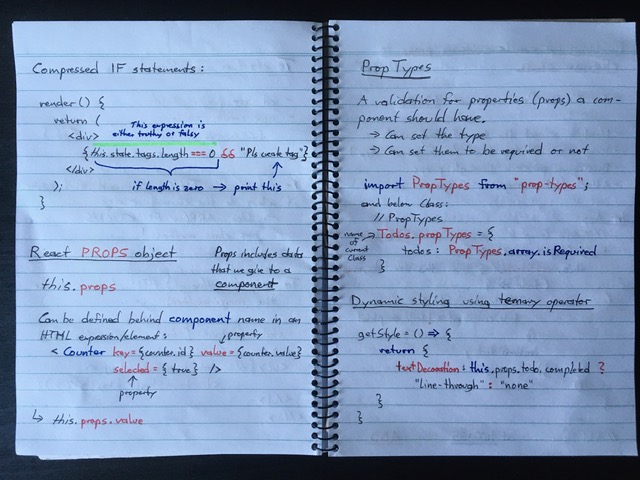 Compressed IF statements:
render() {
return (
<div>
This expression is
either truthy or falsy
{this.state.tags.length === 0 && "Pls create tag"}
</div>
if length is zero → print this
);
}
React PROPS object
Props includes data
that we give to a
component
this.props
Can be defined behind component name in an
HTML expression/element:
property
<Counter key={counter.id} value={counter.value}
selected={true} />
property
↳ this.props.value
PropTypes
A validation for properties (props) a com-
ponent should have.
→ Can set the type
→ Can set them to be required or not
import PropTypes from "prop-types";
and below Class:
// PropTypes
name of current Class → Todos.propTypes = {
todos: PropTypes.array.isRequired
}
Dynamic styling using ternary operator
getStyle = () => {
return {
textDecoration: this.props.todo.completed ?
"line-through" : "none"
}
}